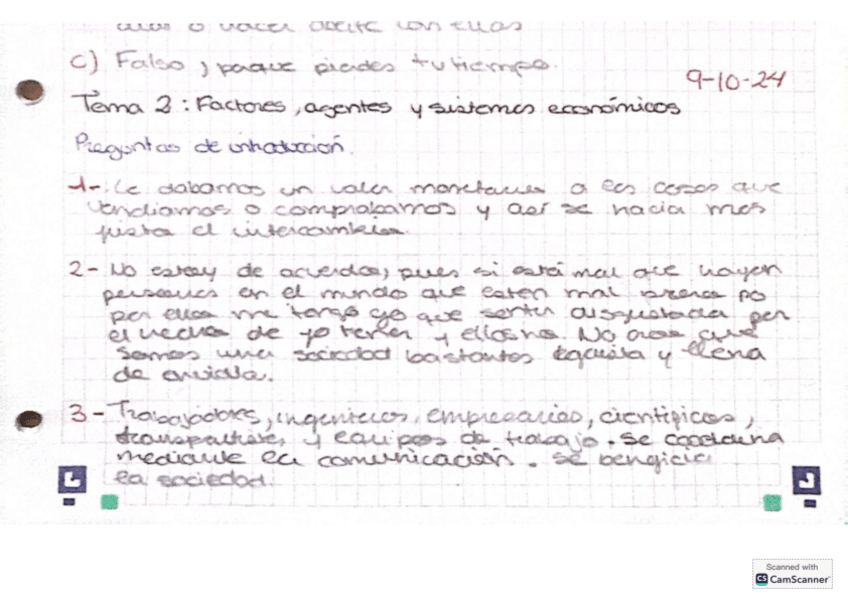 o hacer aceite con ellas
c) Falso, porque pierdes tu tiempo.
9-10-24
Tema 2: Factores, agentes y sistemas económicos
Preguntas de introducción.
1-. Le dabamos un valor monetario a las cosas que
vendiamos o comprabamos y así se hacia mas
justo el intercambio.
2- No estoy de acuerdo, pues si está mal que hayan
personas en el mundo que esten mal pero no
por ellos me tengo yo que sentir disgustada por
el hecho de yo tener y ellos no. No creo que
somos una sociedad bastantes egoista y llena
de envidia.
3- Trabajadores, ingenieros, empresarios, cientificos,
transportistas, y equipos de trabajo. Se coordina
mediante la comunicación. Se beneficia
la sociedad.
Scanned with
CS CamScanner